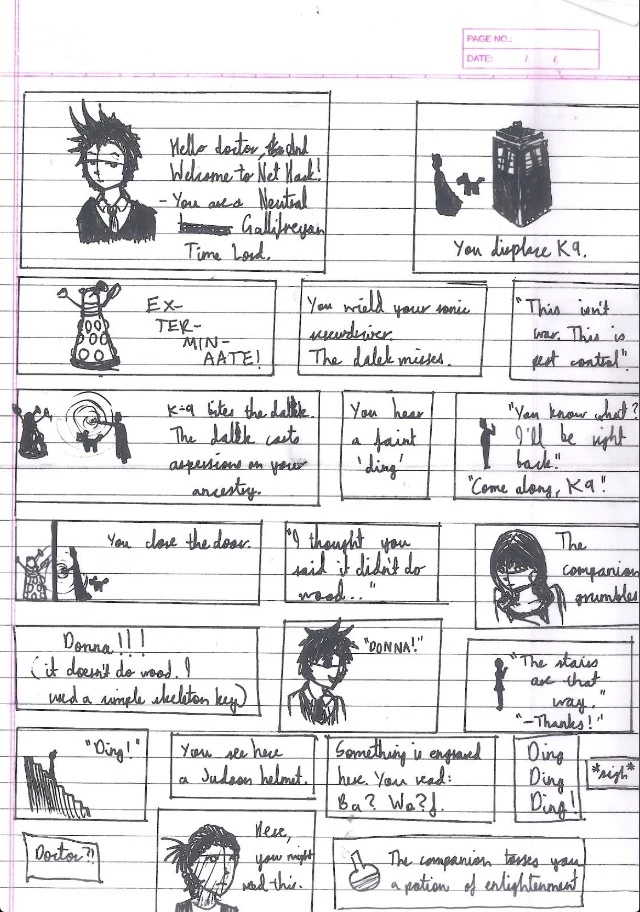 PAGE NO.:
DATE: / /
Hello doctor, and
Welcome to Net Hack!
- You are a Neutral
Gallifreyan
Time Lord.
You displace K9.
EX-
TER-
MIN-
AATE!
You wield your sonic
screwdriver.
The dalek misses.
"This isn't
war. This is
pest control".
K-9 bites the dalek.
The dalek casts
aspersions on your
ancestry.
You hear
a faint
'ding'
"You know what?
I'll be right
back."
"Come along, K9!"
You close the door.
"I thought you
said it didn't do
wood..."
The
companion
grumbles
Donna!!!
(it doesn't do wood. I
used a simple skeleton key)
"DONNA!"
"The stairs
are that
way."
"-Thanks!"
"Ding!"
You see here
a Judoon helmet.
Something is engraved
here. You read:
Ba? Wa?f.
Ding
Ding
Ding!
*sigh*
Doctor?!
Here,
you might
need this.
The companion tosses you
a potion of enlightenment